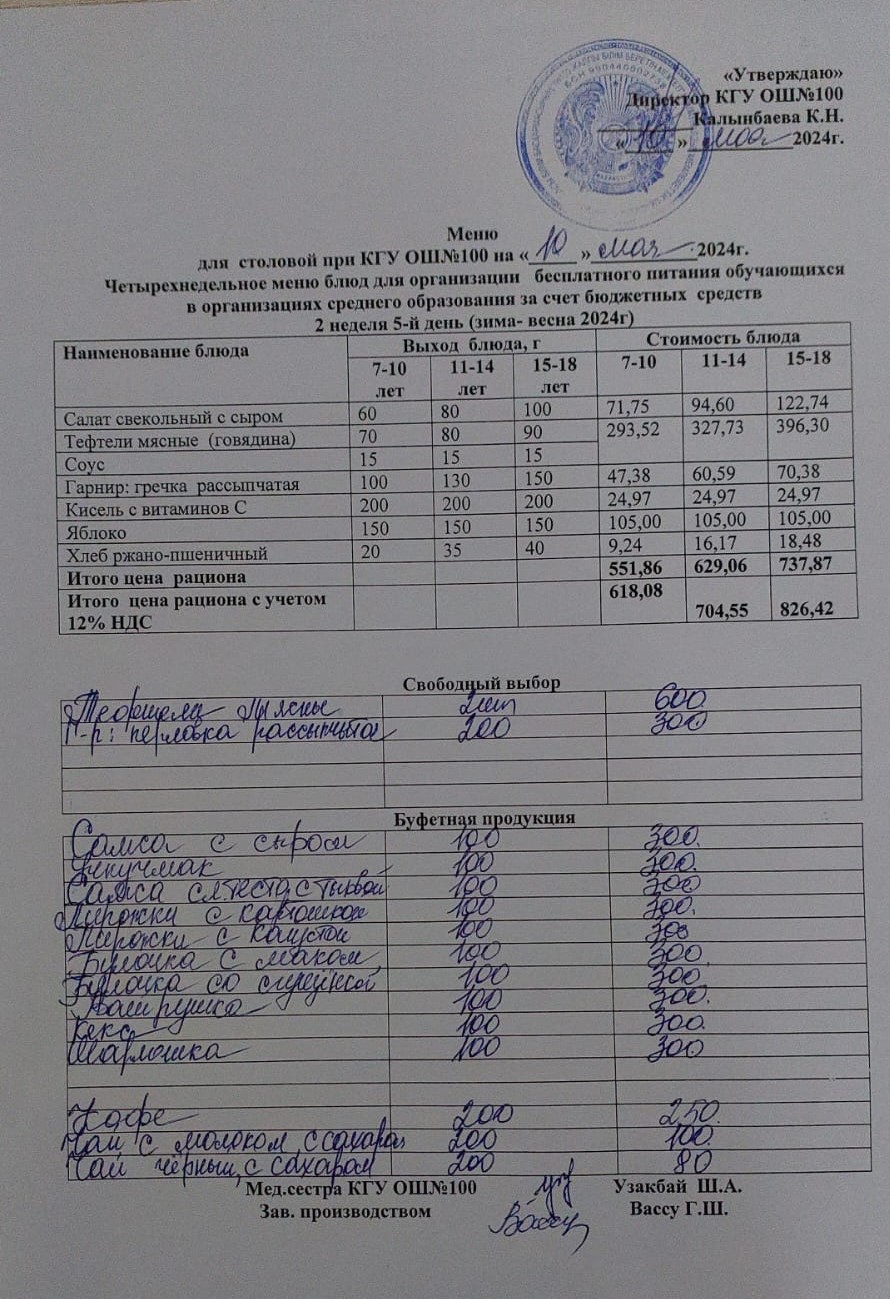 «Утверждаю»
Директор КГУ ОШ№100
Калынбаева К.Н.
« 10 » мая 2024г.
Меню
для столовой при КГУ ОШ№100 на « 10 » мая 2024г.
Четырехнедельное меню блюд для организации бесплатного питания обучающихся
в организациях среднего образования за счет бюджетных средств
2 неделя 5-й день (зима- весна 2024г)
Наименование блюда Выход блюда, г Стоимость блюда
7-10 лет 11-14 лет 15-18 лет 7-10 11-14 15-18
Салат свекольный с сыром 60 80 100 71,75 94,60 122,74
Тефтели мясные (говядина) 70 80 90 293,52 327,73 396,30
Соус 15 15 15
Гарнир: гречка рассыпчатая 100 130 150 47,38 60,59 70,38
Кисель с витаминов С 200 200 200 24,97 24,97 24,97
Яблоко 150 150 150 105,00 105,00 105,00
Хлеб ржано-пшеничный 20 35 40 9,24 16,17 18,48
Итого цена рациона 551,86 629,06 737,87
Итого цена рациона с учетом 618,08
12% НДС 704,55 826,42
Свободный выбор
Тефтели мясные 2шт 600
Г-р: перловка рассыпчатая 200 300
Буфетная продукция
Самса с сыром 100 300.
Учкучмак 100 300.
Самса сл.теста с тыквой 100 300
Пирожки с картошкой 100 300.
Пирожки с капустой 100 300
Булочка с маком 100 300.
Булочка со сгущёнкой 100 300
Ватрушка 100 300.
Кекс 100 300.
Шарлотка 100 300
Кофе 200 250.
Чай с молоком, с сахаром 200 100.
Чай чёрный, с сахаром 200 80
Мед.сестра КГУ ОШ№100 Узакбай Ш.А.
Зав. производством Вассу Вассу Г.Ш.